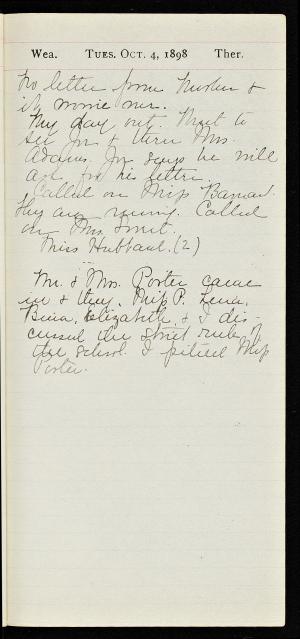 Wea. TUES. OCT. 4, 1898 Ther.
No letter from Mother &
it worries me.
My day out. Went to
see Jn & then Mrs.
Adams. Jn says he will
ask for his letter.
Called on Miss
They are moving. Called
on Mrs. Smit.
Miss Hubbard. (2)
Mr. & Mrs. Porter came
in & they, Miss P. Lena,
Bina, Elizabeth & I dis-
cussed the strict rules of
the school. I pitied Miss
Porter.